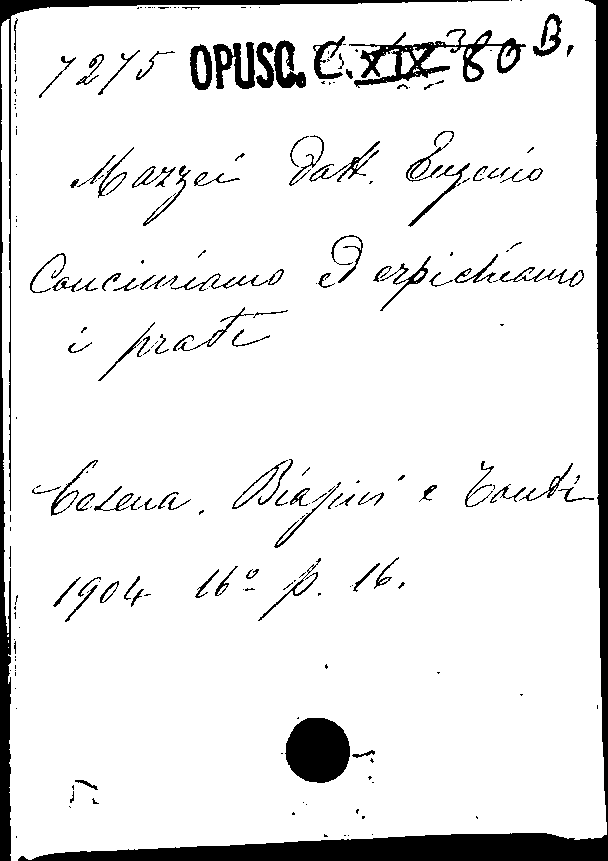 7275 OPUSC. C. XIX 3 80 B.
Mazzei Dott. Eugenio
Concimiamo ed erpichiamo
i prati
Cesena. Biasini e Tonti
1904 16º p. 16.